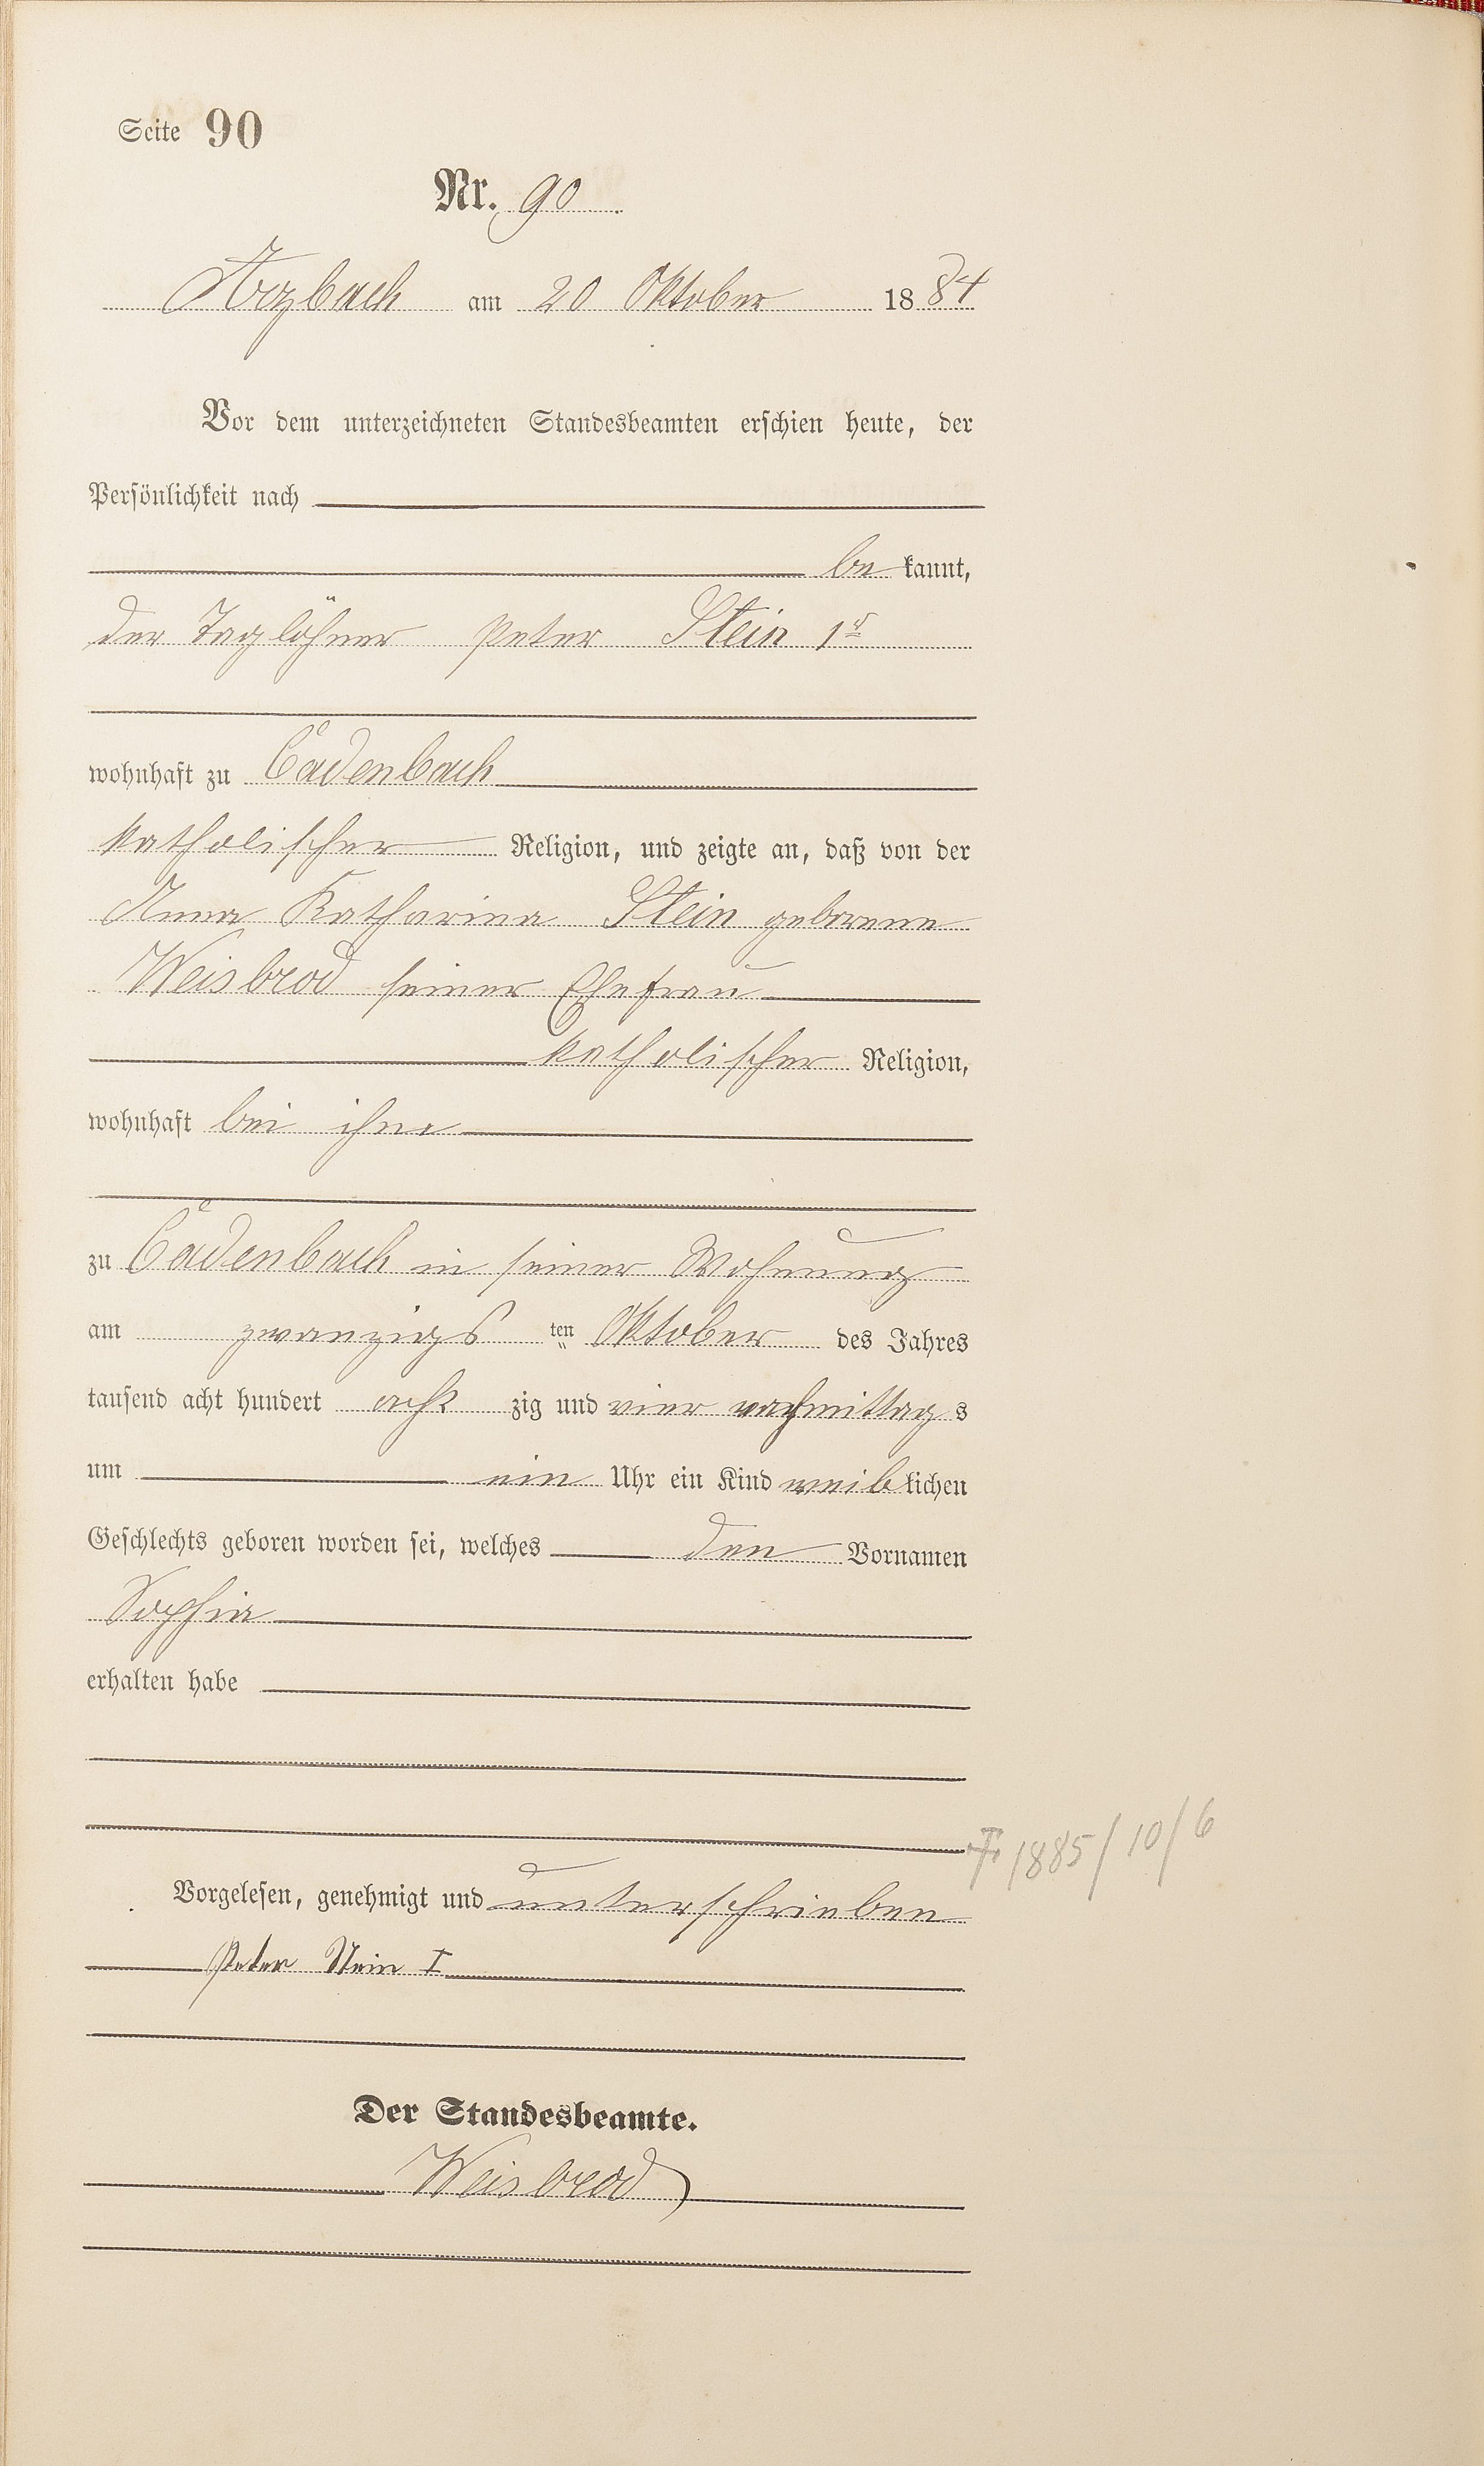 Seite 90
Nr. 90
Arzbach am 20 Oktober 1884
Vor dem unterzeichneten Standesbeamten erschien heute, der
Persönlichkeit nach
be kannt,
der Taglöhner Peter Stein 1r
wohnhaft zu Cadenbach
katholischer Religion, und zeigte an, daß von der
Anna Katharina Stein geborene
Weisbrod seiner Ehefrau
katholischer Religion,
wohnhaft bei ihm
zu Cadenbach in seiner Wohnung
am zwanzigs ten Oktober des Jahres
tausend acht hundert acht zig und vier nachmittag s
um ein Uhr ein Kind weib lichen
Geschlechts geboren worden sei, welches den Vornamen
Sophia
erhalten habe
† 1885/10/6
Vorgelesen, genehmigt und unterschrieben
Peter Stein I
Der Standesbeamte.
Weisbrod